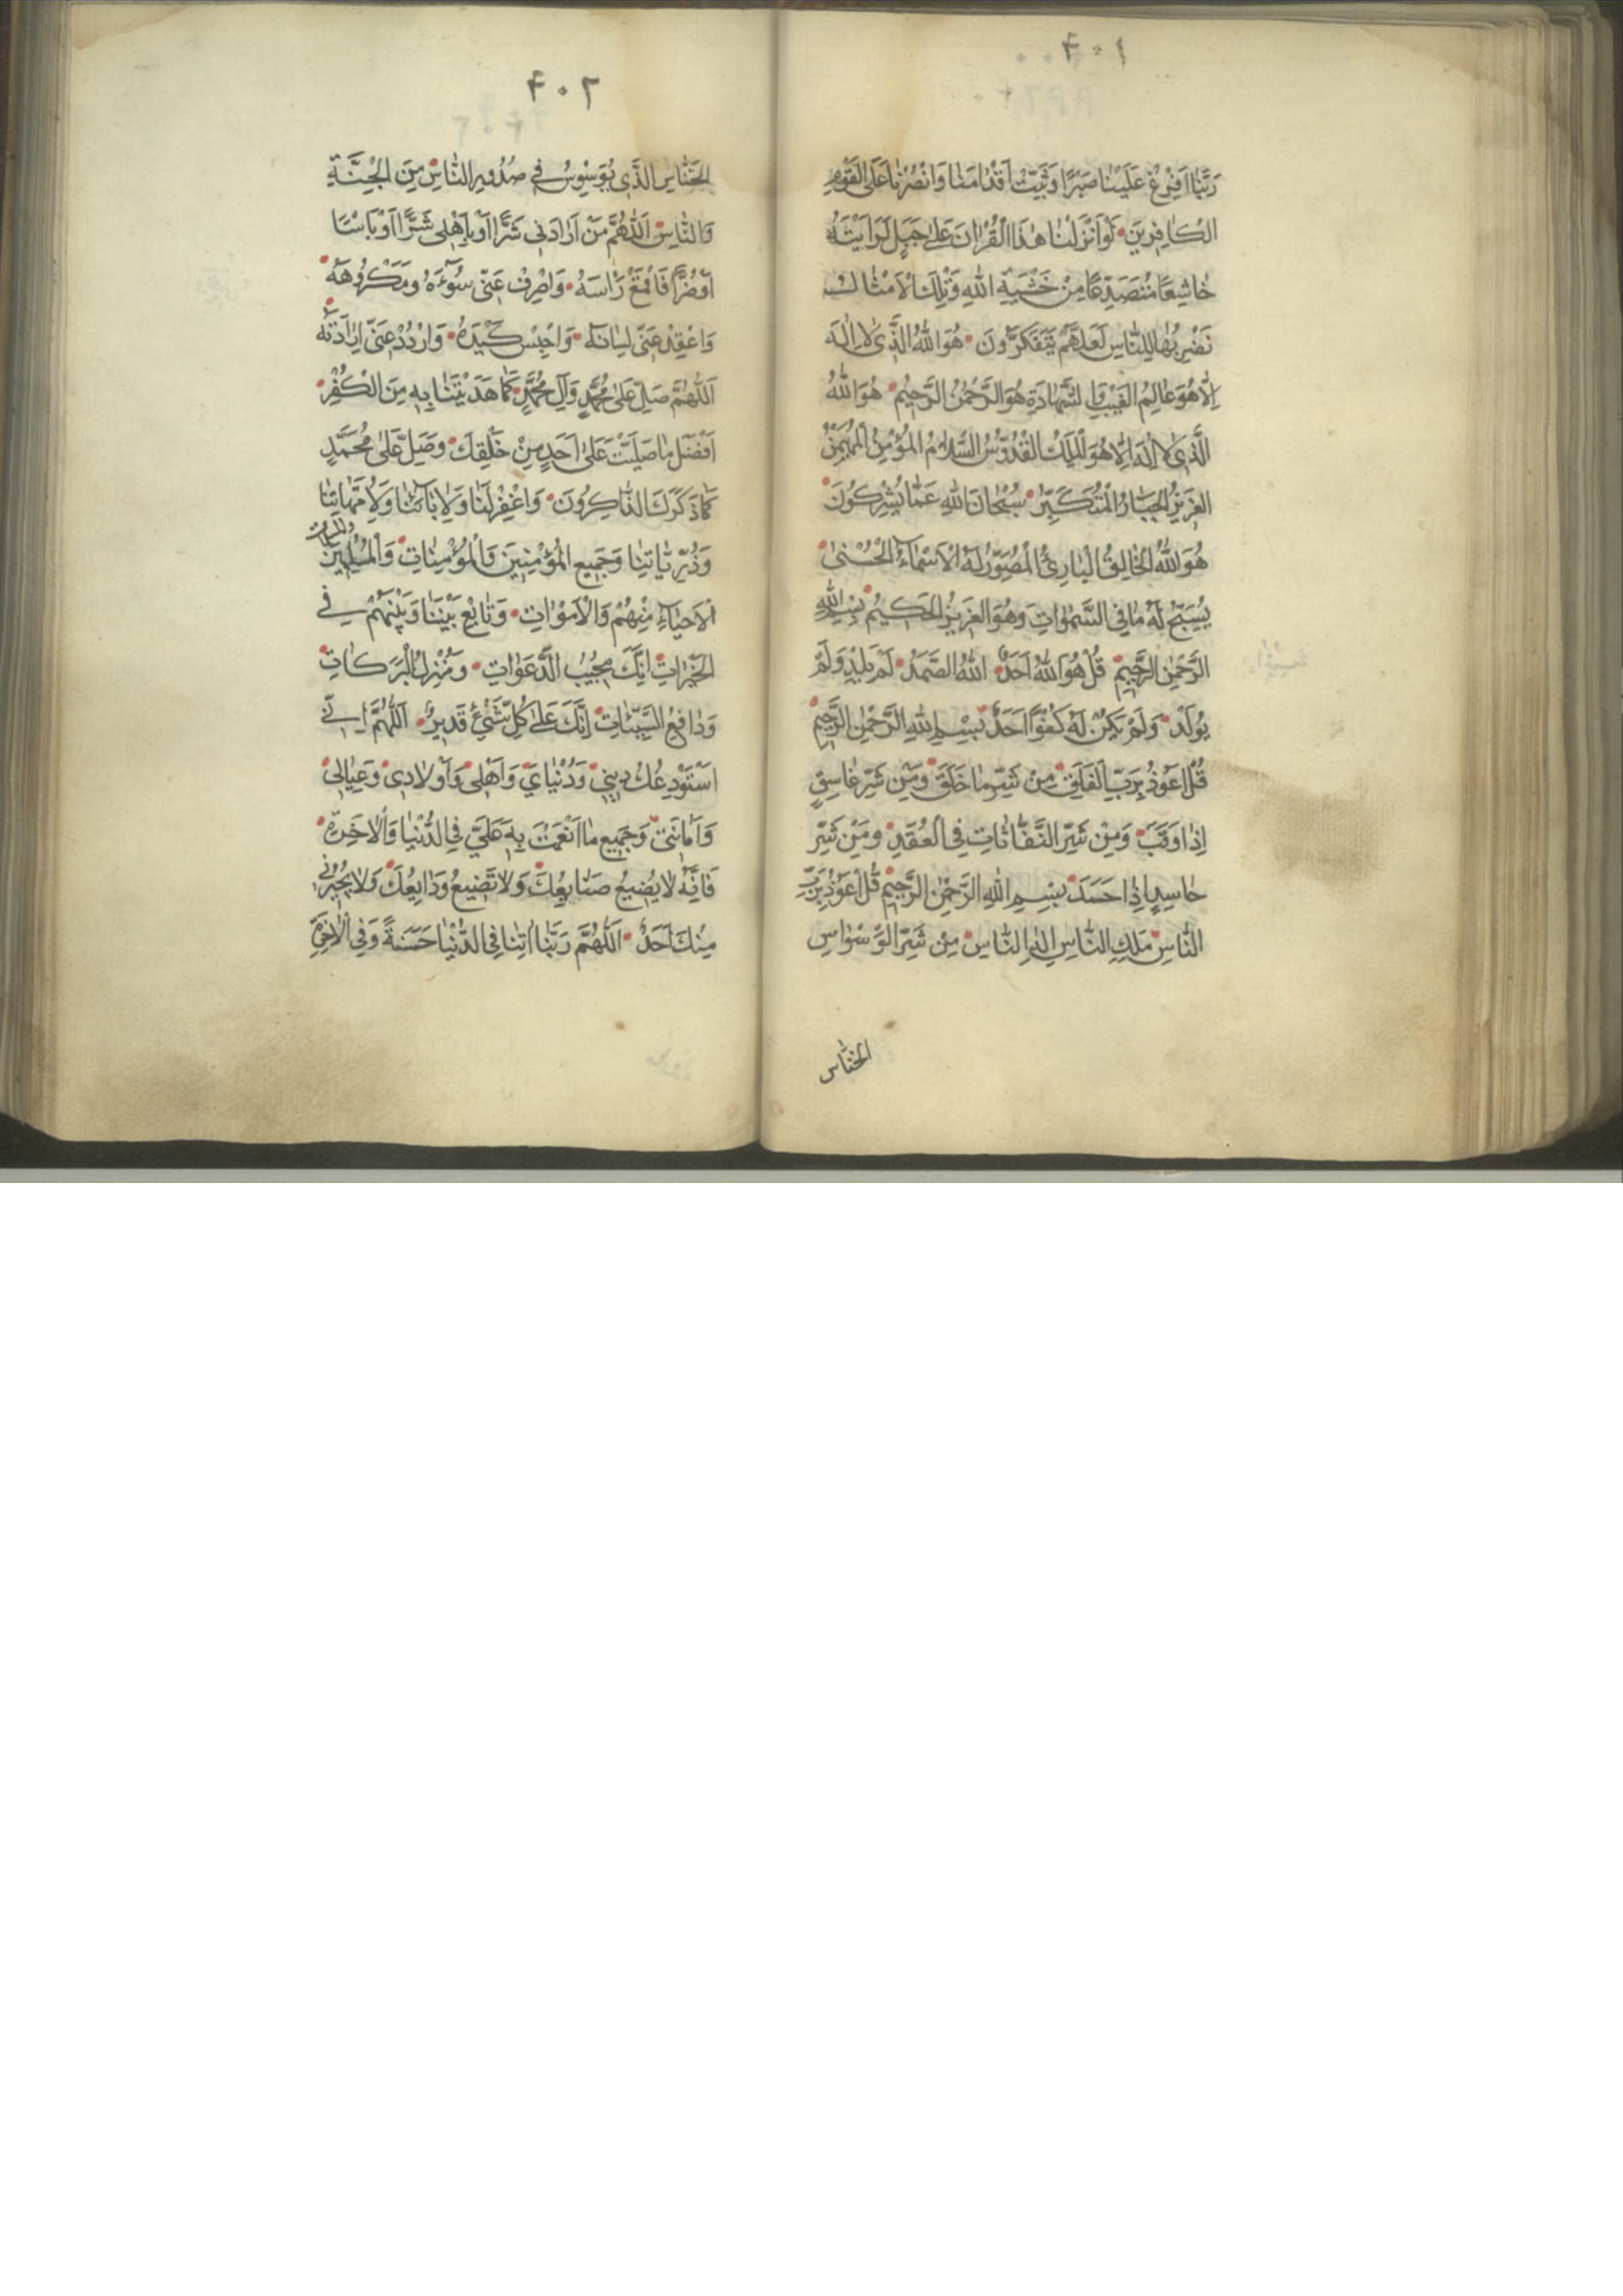 ٤٠١
رَبَّنَا اَفْرِغْ عَلَيْنَا صَبْرًا وَثَبِّتْ اَقْدَامَنَا وَانْصُرْنَا عَلَى الْقَوْمِ
الْكَافِرِينَ لَوْ اَنْزَلْنَا هٰذَا الْقُرْاٰنَ عَلٰى جَبَلٍ لَرَاَيْتَهُ
خَاشِعًا مُتَصَدِّعًا مِنْ خَشْيَةِ اللهِ وَتِلْكَ الْاَمْثَالُ
نَضْرِبُهَا لِلنَّاسِ لَعَلَّهُمْ يَتَفَكَّرُونَ هُوَ اللهُ الَّذِى لَا اِلٰهَ
اِلَّا هُوَ عَالِمُ الْغَيْبِ وَالشَّهَادَةِ هُوَ الرَّحْمٰنُ الرَّحِيمُ هُوَ اللهُ
الَّذِى لَا اِلٰهَ اِلَّا هُوَ الْمَلِكُ الْقُدُّوسُ السَّلَامُ الْمُؤْمِنُ الْمُهَيْمِنُ
الْعَزِيزُ الْجَبَّارُ الْمُتَكَبِّرُ سُبْحَانَ اللهِ عَمَّا يُشْرِكُونَ
هُوَ اللهُ الْخَالِقُ الْبَارِئُ الْمُصَوِّرُ لَهُ الْاَسْمَاءُ الْحُسْنٰى
يُسَبِّحُ لَهُ مَا فِى السَّمٰوَاتِ وَهُوَ الْعَزِيزُ الْحَكِيمُ بِسْمِ اللهِ
الرَّحْمٰنِ الرَّحِيمِ قُلْ هُوَ اللهُ اَحَدٌ اللهُ الصَّمَدُ لَمْ يَلِدْ وَلَمْ
يُولَدْ وَلَمْ يَكُنْ لَهُ كُفُوًا اَحَدٌ بِسْمِ اللهِ الرَّحْمٰنِ الرَّحِيمِ
قُلْ اَعُوذُ بِرَبِّ الْفَلَقِ مِنْ شَرِّ مَا خَلَقَ وَمِنْ شَرِّ غَاسِقٍ
اِذَا وَقَبَ وَمِنْ شَرِّ النَّفَّاثَاتِ فِى الْعُقَدِ وَمِنْ شَرِّ
حَاسِدٍ اِذَا حَسَدَ بِسْمِ اللهِ الرَّحْمٰنِ الرَّحِيمِ قُلْ اَعُوذُ بِرَبِّ
النَّاسِ مَلِكِ النَّاسِ اِلٰهِ النَّاسِ مِنْ شَرِّ الْوَسْوَاسِ
الخنّاس
٤٠٢
الْخَنَّاسِ الَّذِى يُوَسْوِسُ فِى صُدُورِ النَّاسِ مِنَ الْجِنَّةِ
وَالنَّاسِ اَللّٰهُمَّ مَنْ اَرَادَنِى شَرًّا اَوْ بِاَهْلِى شَرًّا اَوْ بَاْسًا
اَوْ ضُرًّا فَاقْمَعْ رَاْسَهُ وَاصْرِفْ عَنِّى سُوءَهُ وَمَكْرُوهَهُ
وَاعْقِدْ عَنِّى لِسَانَهُ وَاحْبِسْ كَيْدَهُ وَارْدُدْ عَنِّى اِرَادَتَهُ
اَللّٰهُمَّ صَلِّ عَلٰى مُحَمَّدٍ وَآلِ مُحَمَّدٍ كَمَا هَدَيْتَنَا بِهِ مِنَ الْكُفْرِ
اَفْضَلَ مَا صَلَّيْتَ عَلٰى اَحَدٍ مِنْ خَلْقِكَ وَصَلِّ عَلٰى مُحَمَّدٍ
كَمَا ذَكَرَكَ الذَّاكِرُونَ وَاغْفِرْ لَنَا وَلِاٰبَائِنَا وَلِاُمَّهَاتِنَا
وَذُرِّيَّاتِنَا وَجَمِيعِ الْمُؤْمِنِينَ وَالْمُؤْمِنَاتِ وَالْمُسْلِمِينَ والمسلمات
الْاَحْيَاءِ مِنْهُمْ وَالْاَمْوَاتِ وَتَابِعْ بَيْنَنَا وَبَيْنَهُمْ فِى
الْخَيْرَاتِ اِنَّكَ مُجِيبُ الدَّعَوَاتِ وَمُنْزِلُ الْبَرَكَاتِ
وَدَافِعُ السَّيِّئَاتِ اِنَّكَ عَلٰى كُلِّ شَىْءٍ قَدِيرٌ اَللّٰهُمَّ اِنِّى
اَسْتَوْدِعُكَ دِينِى وَدُنْيَاىَ وَاَهْلِى وَاَوْلَادِى وَعِيَالِى
وَاَمَانَتِى وَجَمِيعَ مَا اَنْعَمْتَ بِهِ عَلَىَّ فِى الدُّنْيَا وَالْاٰخِرَةِ
فَاِنَّهُ لَا يَضِيعُ صَنَايِعُكَ وَلَا تَضِيعُ وَدَايِعُكَ وَلَا يُجِيرُنِى
مِنْكَ اَحَدٌ اَللّٰهُمَّ رَبَّنَا اٰتِنَا فِى الدُّنْيَا حَسَنَةً وَفِى الْاٰخِرَةِ